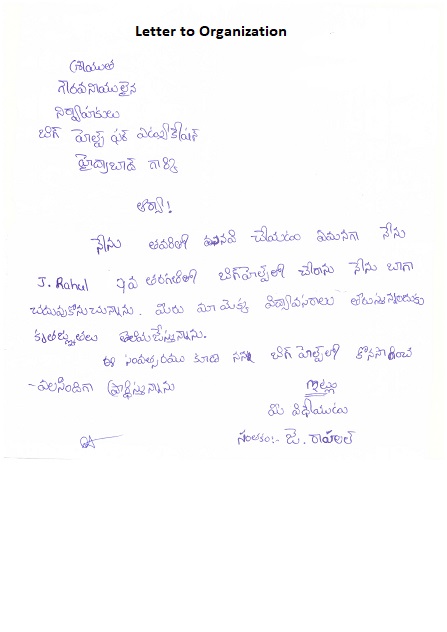 Letter to Organization
శ్రీయుత
గౌరవనీయులైన
నిర్వాహకులు
బిగ్ హెల్ప్ ఫర్ ఎడ్యుకేషన్
హైద్రాబాద్ గార్కి
ఆర్యా!
నేను తమరితో మనవి చేయుట ఏమనగా నేను
J. Rahul 7వ తరగతిలో బిగ్‌హెల్ప్‌లో చేరాను నేను బాగా
చదువుకొనుచున్నాను. మీరు మా యొక్క విద్యావసరాలు తీరుస్తున్నందుకు
కృతజ్ఞతలు తెలియజేస్తున్నాను.
ఈ సంవత్సరము కూడా నన్ను బిగ్ హెల్ప్‌లో కొనసాగించ
-వలసిందిగా ప్రార్థిస్తున్నాను
ఇట్లు
మీ విధేయుడు
సంతకం:- జె. రాహుల్